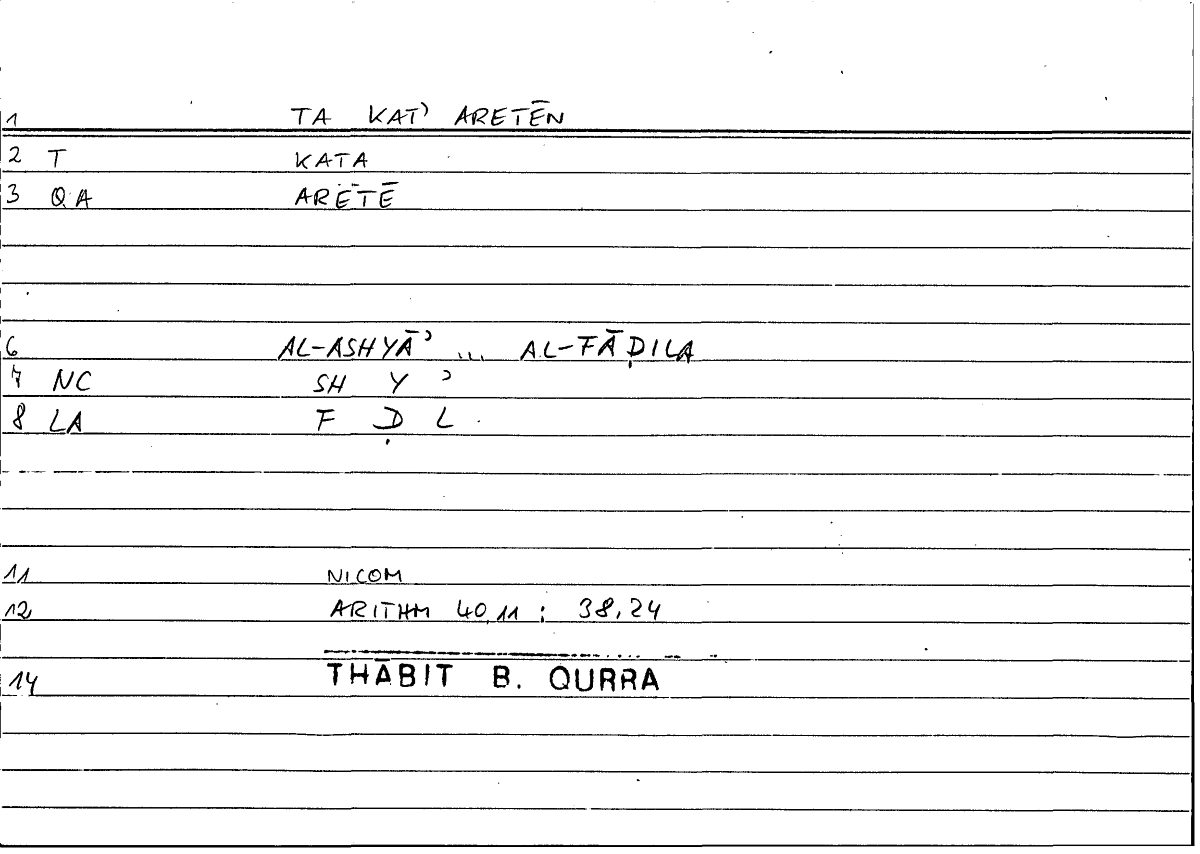 1 TA KAT' ARETĒN
2 T KATA
3 QA ARETĒ
6 AL-ASHYĀʾ ... AL-FĀḌILA
7 NC SH Y ʾ
8 LA F Ḍ L
11 NICOM
12 ARITHM 40,11 : 38,24
14 THĀBIT B. QURRA